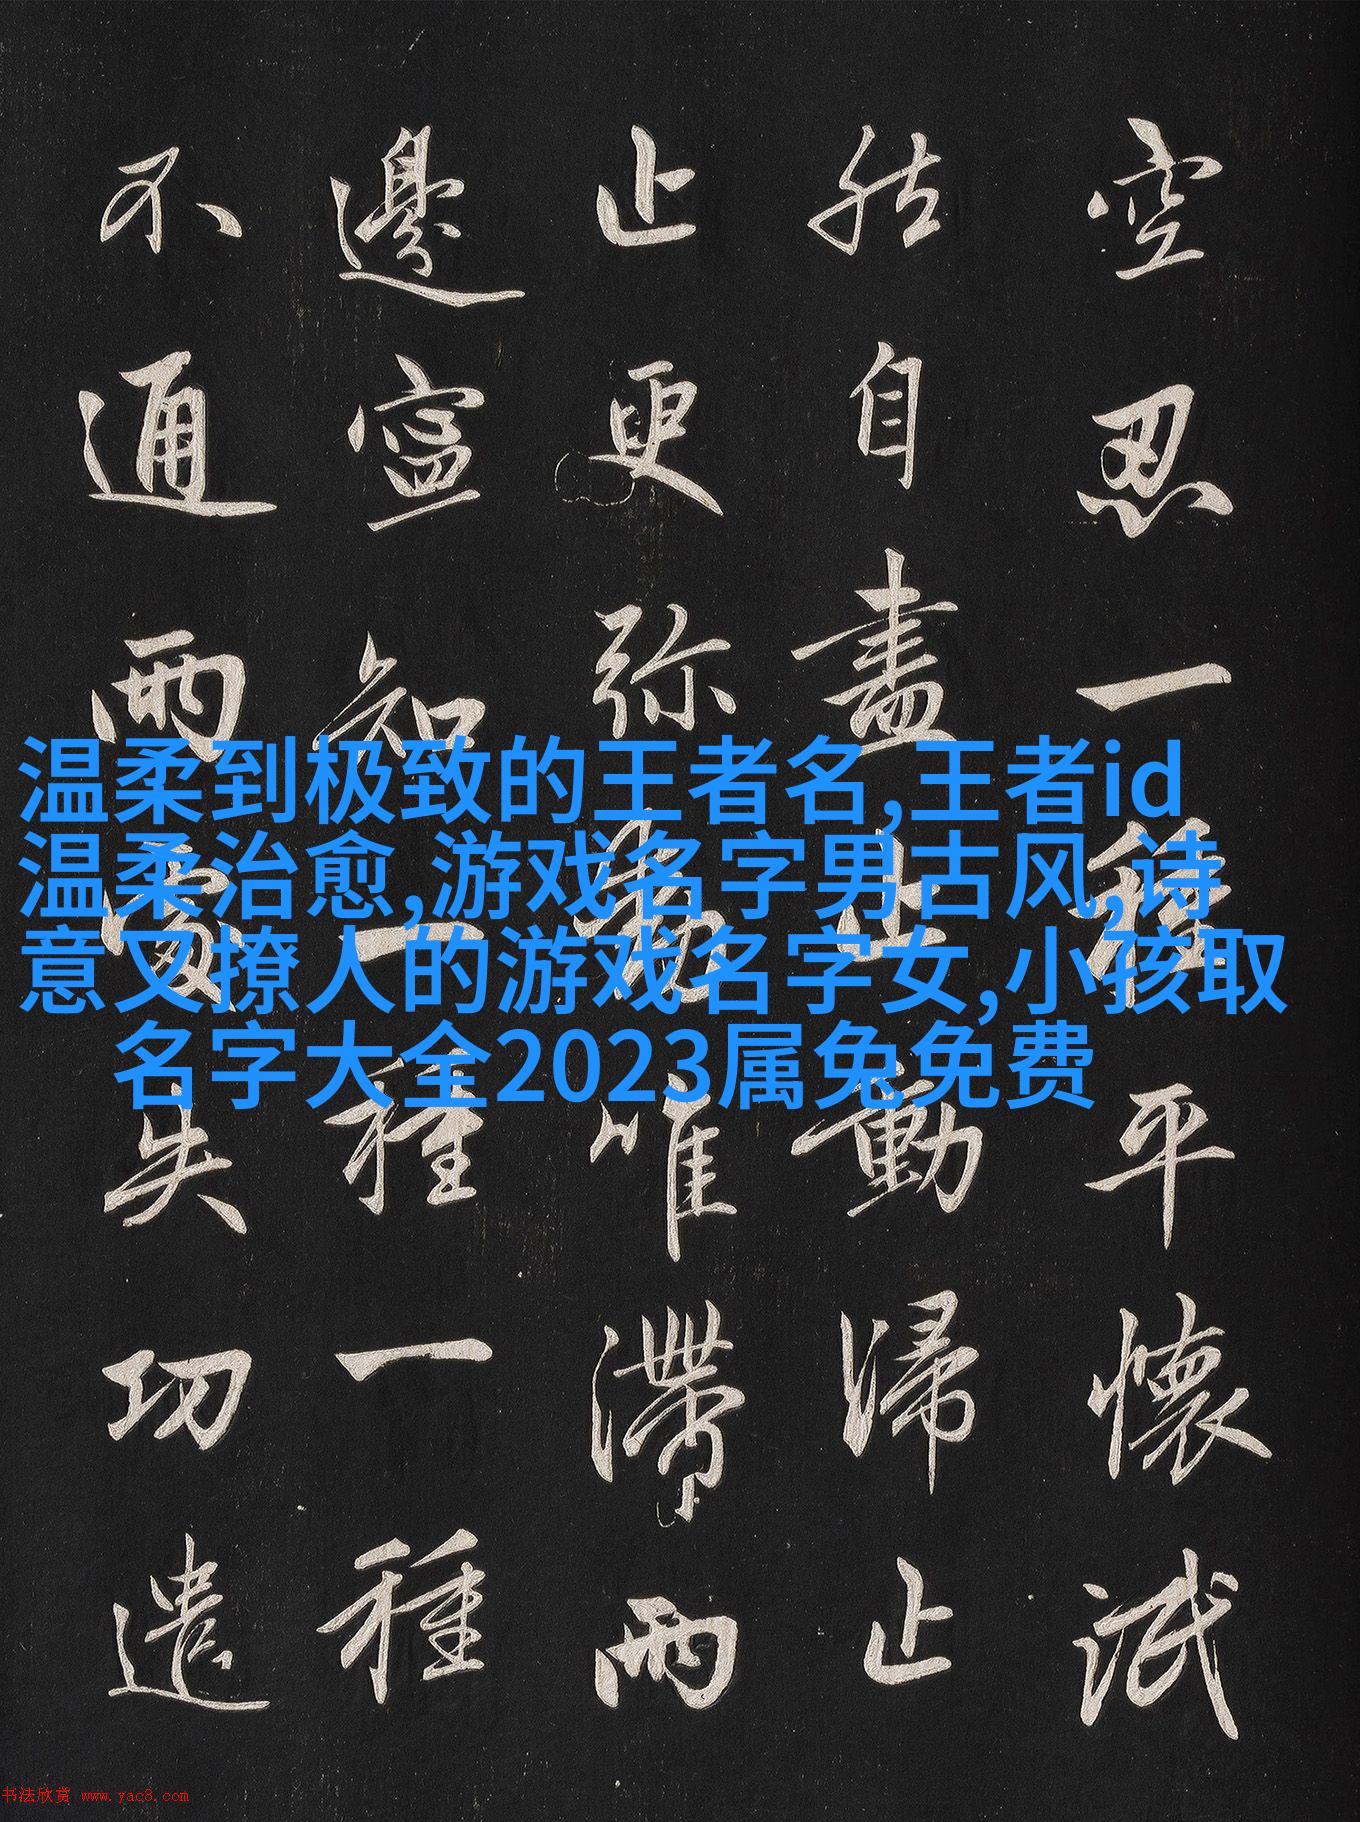 空忍一種平懷泯
然自盡止動歸止
止更弥動唯滯兩
邊寧知一種一種
不通兩處失功遣
温柔到极致的王者名,王者id
温柔治愈,游戏名字男古风,诗
意又撩人的游戏名字女,小孩取
名字大全2023属兔免费
书法欣赏 www.yac8.com